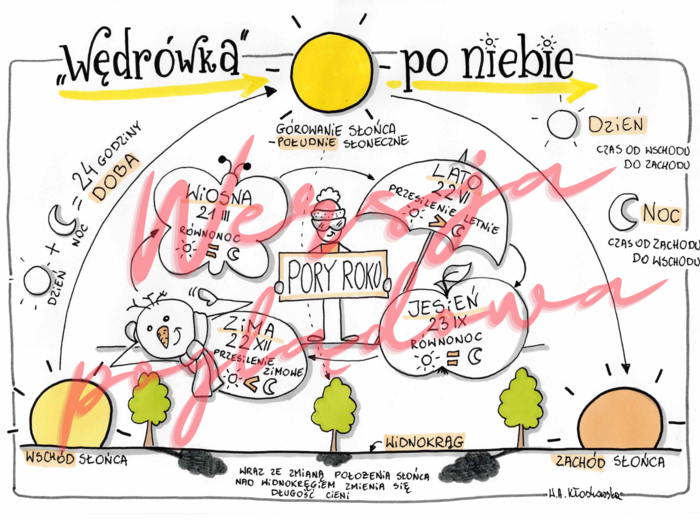 „Wędrówka" po niebie
GÓROWANIE SŁOŃCA
- POŁUDNIE SŁONECZNE
DZIEŃ
CZAS OD WSCHODU
DO ZACHODU
NOC
CZAS OD ZACHODU
DO WSCHODU
DZIEŃ + NOC = 24 GODZINY
DOBA
WIOSNA
21 III
RÓWNONOC
=
LATO
22 VI
PRZESILENIE LETNIE
>
PORY ROKU
JESIEŃ
23 IX
RÓWNONOC
=
ZIMA
22 XII
PRZESILENIE
ZIMOWE
<
Wersja
poglądowa
WSCHÓD SŁOŃCA
WIDNOKRĄG
ZACHÓD SŁOŃCA
WRAZ ZE ZMIANĄ POŁOŻENIA SŁOŃCA
NAD WIDNOKRĘGIEM ZMIENIA SIĘ
DŁUGOŚĆ CIENI